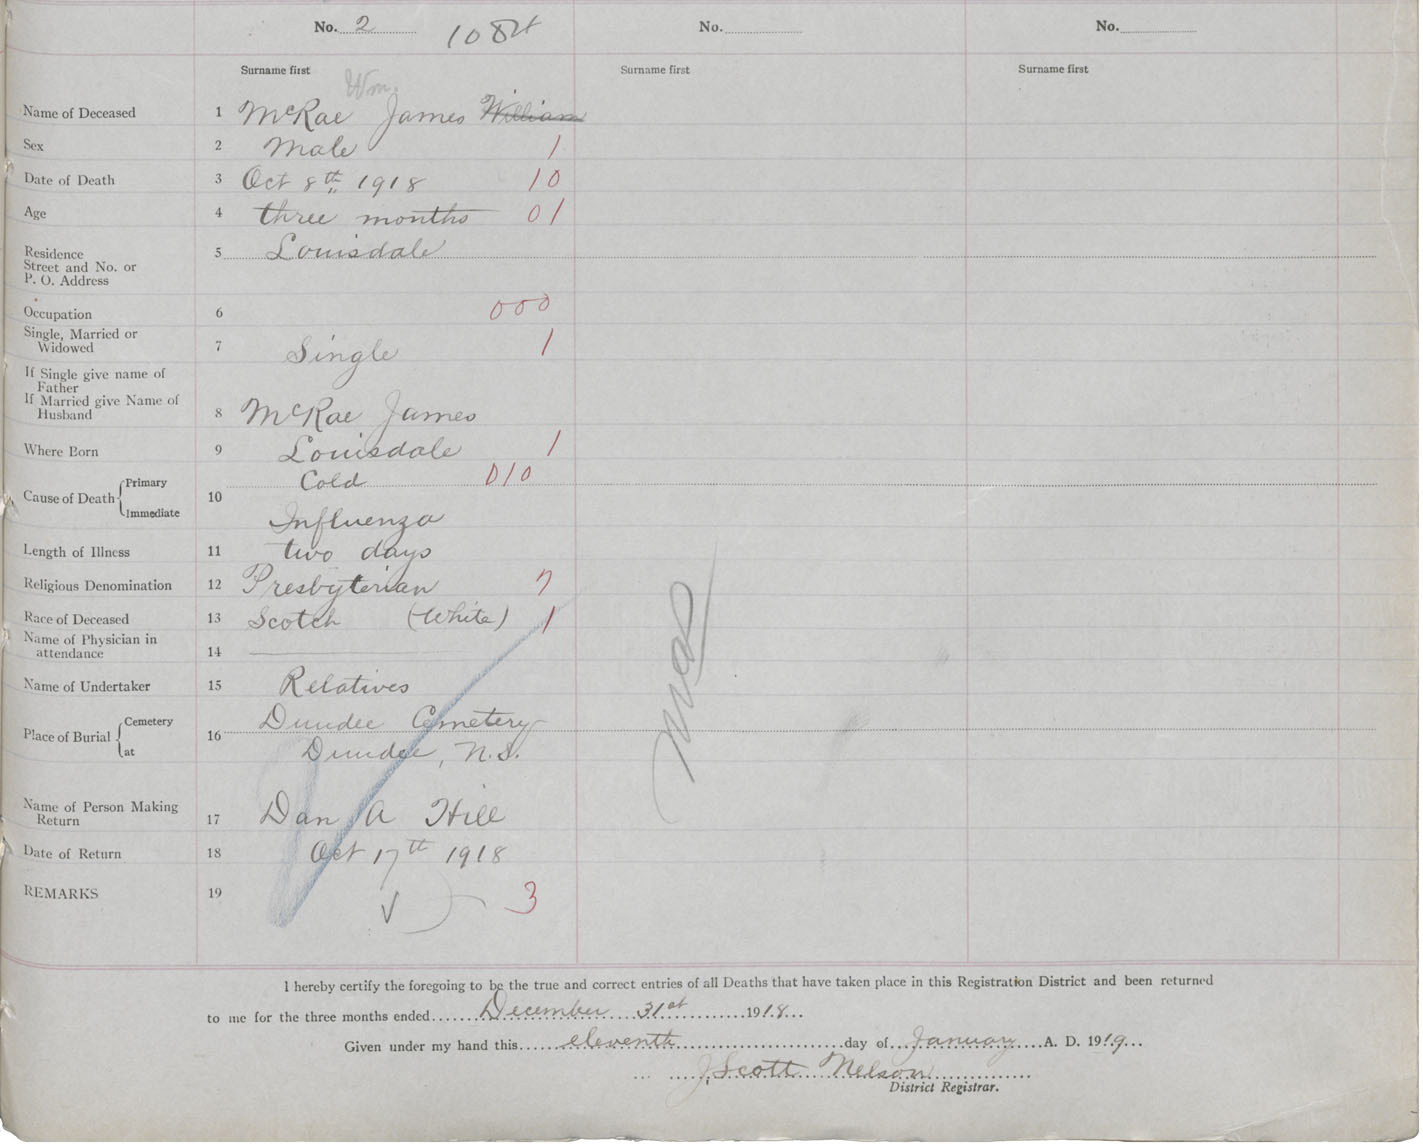 No. 2 No. No.
Surname first Surname first Surname first
Wm.
Name of Deceased 1 McRae James William
Sex 2 Male 1
Date of Death 3 Oct 8th 1918 10
Age 4 three months 01
Residence 5 Louisdale
Street and No. or
P. O. Address
Occupation 6 000
Single, Married or
Widowed 7 Single 1
If Single give name of
Father
If Married give Name of
Husband 8 McRae James
Where Born 9 Louisdale 1
Cause of Death Primary 10 Cold 010
Immediate Influenza
Length of Illness 11 two days
Religious Denomination 12 Presbyterian 7
Race of Deceased 13 Scotch (White) 1
Name of Physician in
attendance 14
Name of Undertaker 15 Relatives
Place of Burial Cemetery 16 Dundee Cemetery
at Dundee, N.S.
Name of Person Making
Return 17 Dan A Hill
Date of Return 18 Oct 17th 1918
REMARKS 19 3
I hereby certify the foregoing to be the true and correct entries of all Deaths that have taken place in this Registration District and been returned
to me for the three months ended December 31st 1918
Given under my hand this eleventh day of January A. D. 1919
J. Scott Nelson
District Registrar.